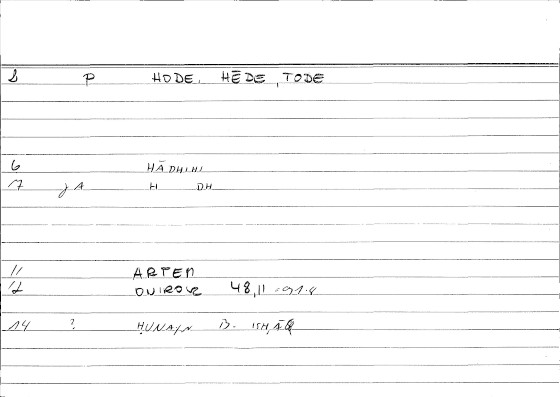 2 P HODE, HĒDE, TODE
6 HĀDHIHI
7 JA H DH
11 ARTEM
12 48,11
14 ? ḤUNAYN B. ISḤĀQ